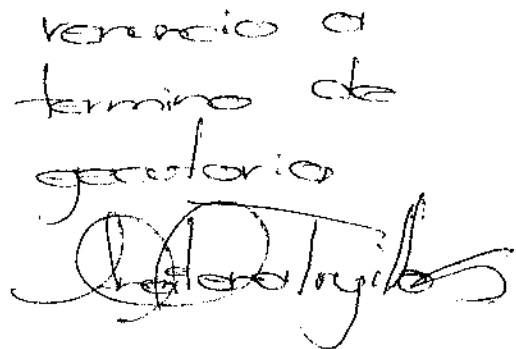 renuncio a
termino de
ejecutoria